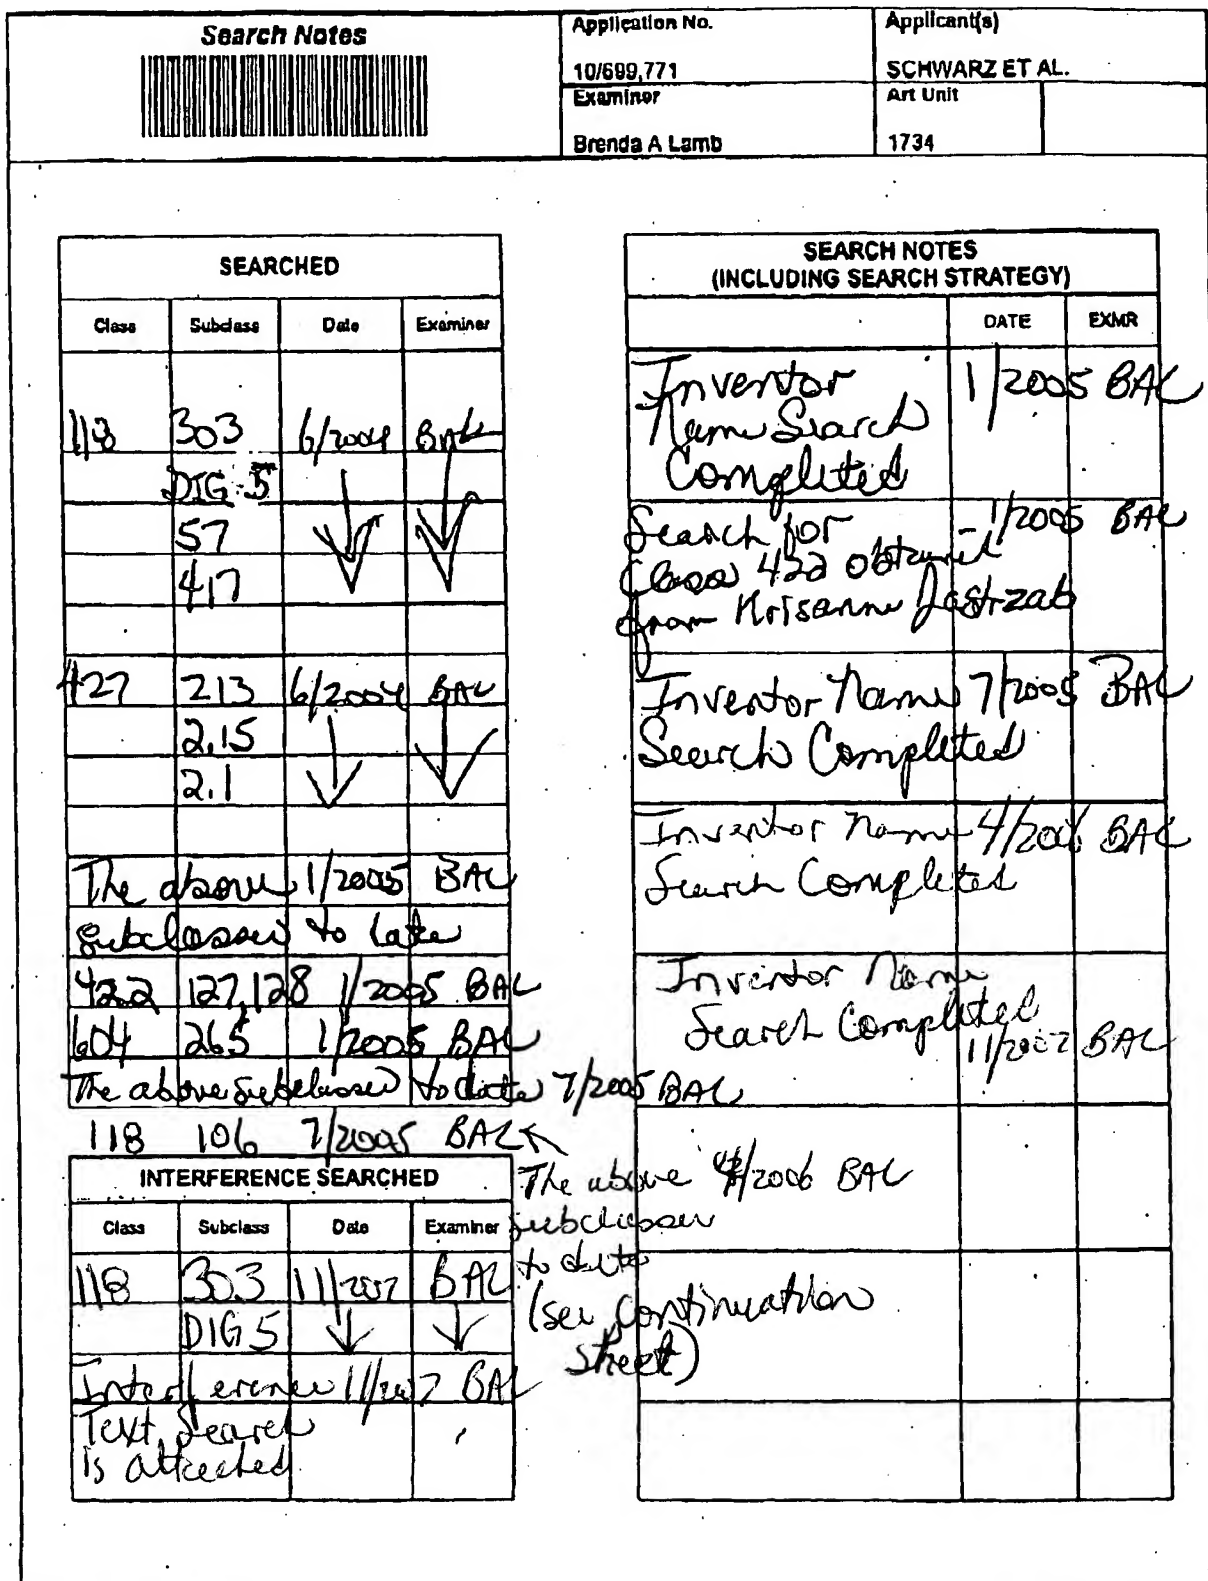 Search Notes
Application No.
10/699,771
Applicant(s)
SCHWARZ ET AL.
Examiner
Brenda A Lamb
Art Unit
1734
SEARCHED
Class Subclass Date Examiner
118 303 6/2004 BAL
DIG 5
57
417
427 213 6/2004 BAL
2.15
2.1
The above 1/2005 BAL
subclasses to date
422 127,128 1/2005 BAL
604 265 1/2005 BAL
The above subclasses to date 7/2005 BAL
118 106 7/2005 BAL
The above 4/2006 BAL
subclasses
to date
(see Continuation
Sheet)
INTERFERENCE SEARCHED
Class Subclass Date Examiner
118 303 11/2007 BAL
DIG 5
Interference 11/2007 BAL
Text Search
is attached
SEARCH NOTES
(INCLUDING SEARCH STRATEGY)
DATE EXMR
Inventor 1/2005 BAL
Name Search
Completed
Search for 1/2005 BAL
Class 422 obtained
from Krisanne Jastrzab
Inventor Name 7/2005 BAL
Search Completed
Inventor Name 4/2006 BAL
Search Completed
Inventor Name
Search Completed
11/2007 BAL